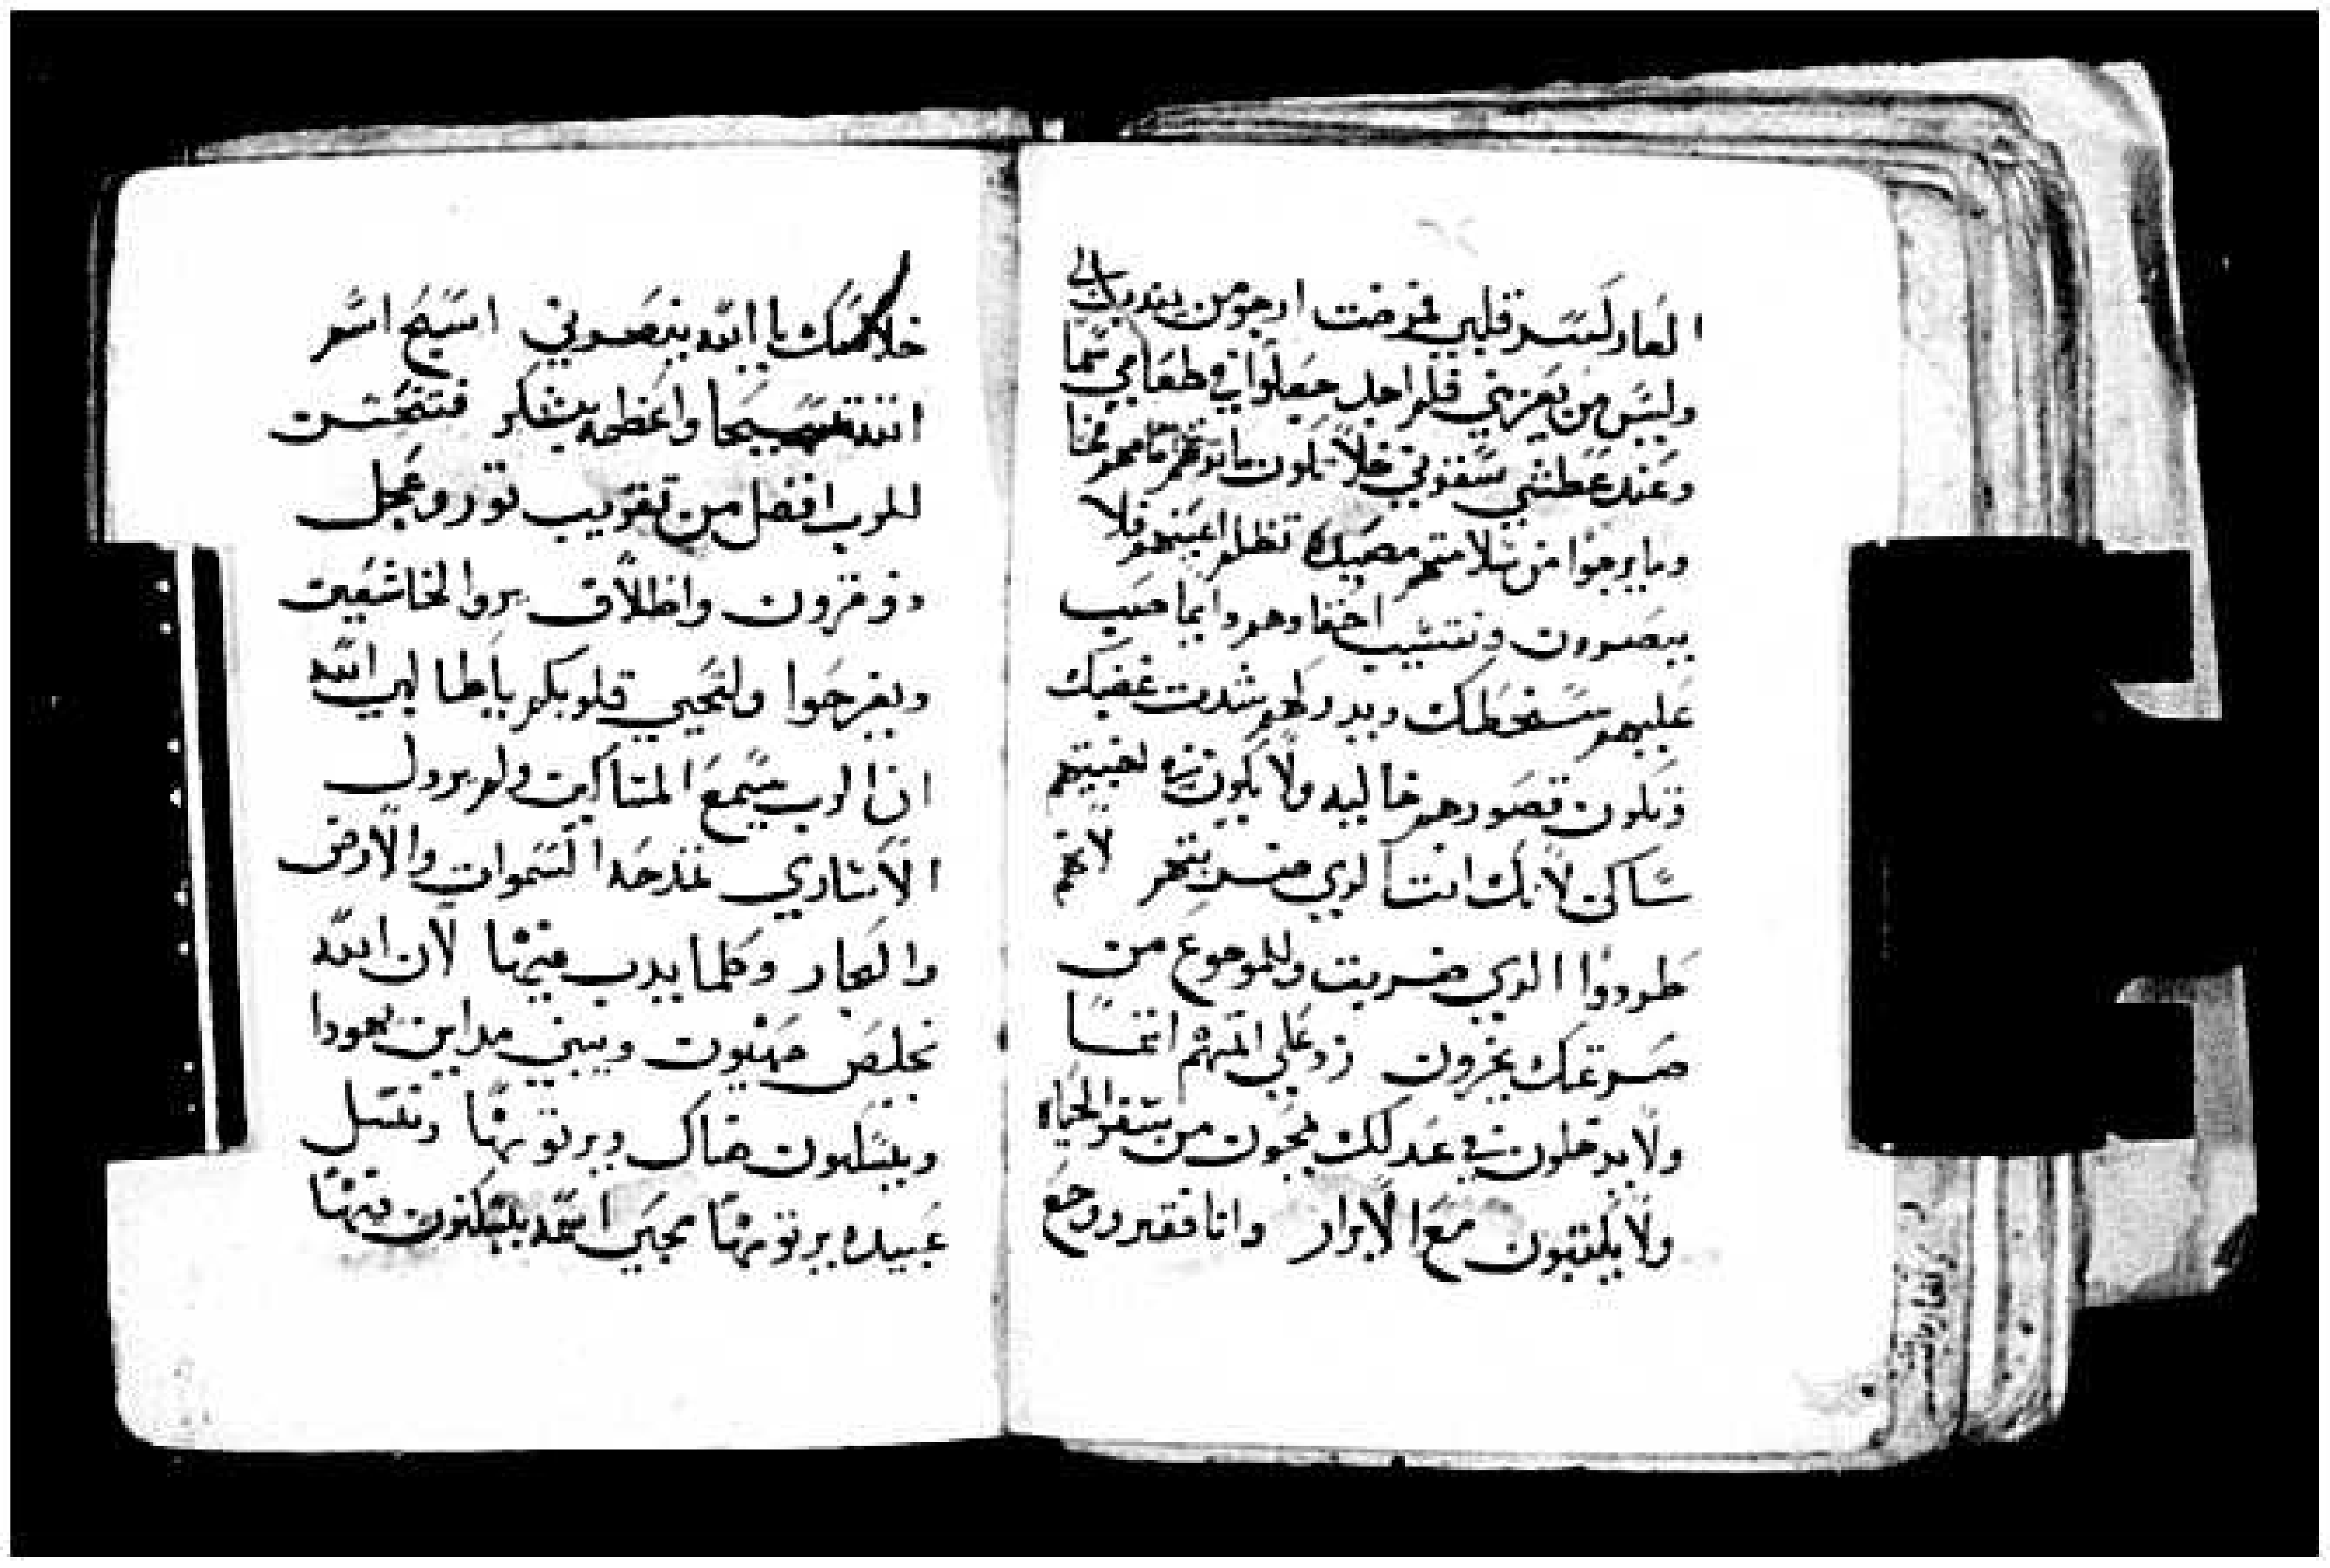 العار كسر قلبي فمرضت ارجو من يندب الي
وليس من يعزيني فلم اجل جعلوا في طعامي سما
وعند عطشي سقوني خلا تكون مايدتهم قدامهم فخا
وما يرجوا من سلامتهم مصيده تظلم اعينهم فلا
يبصرون وتنتشب احقاوهم دايما صب
عليهم سخطك ويدركهم شدت غضبك
وتكون قصورهم خاليه ولا يكون في اخبيتهم
ساكن لانك انت الدي ضربتهم لانهم
طردوا الدي ضربت وللموجوع من
ضربتك يحزون زد على اثمهم اثما
ولا يدخلون في عدلك يمحون من سفر الحياه
ولا يكتبون مع الابرار وانا فقير ووجع
خلاصك يا الله ينصرني اسبح اسم
الله تسبيحا واعظمه بشكر فتحسن
للرب افضل من تقريب تور وعجل
دو قرون واظلاف يروا الخاشعين
ويفرحوا ولتحيي قلوبكم يا طالبي الله
ان الرب سمع المساكين ولم يردل
الاساري تمدحه السموات والارض
والبحار وكلما يدب فيها لان الله
يخلص صهيون ويبني مداين يهودا
ويسكنون هناك ويرتونها ونسل
عبيده يرتونها محبي اسمه يسكنون فيها